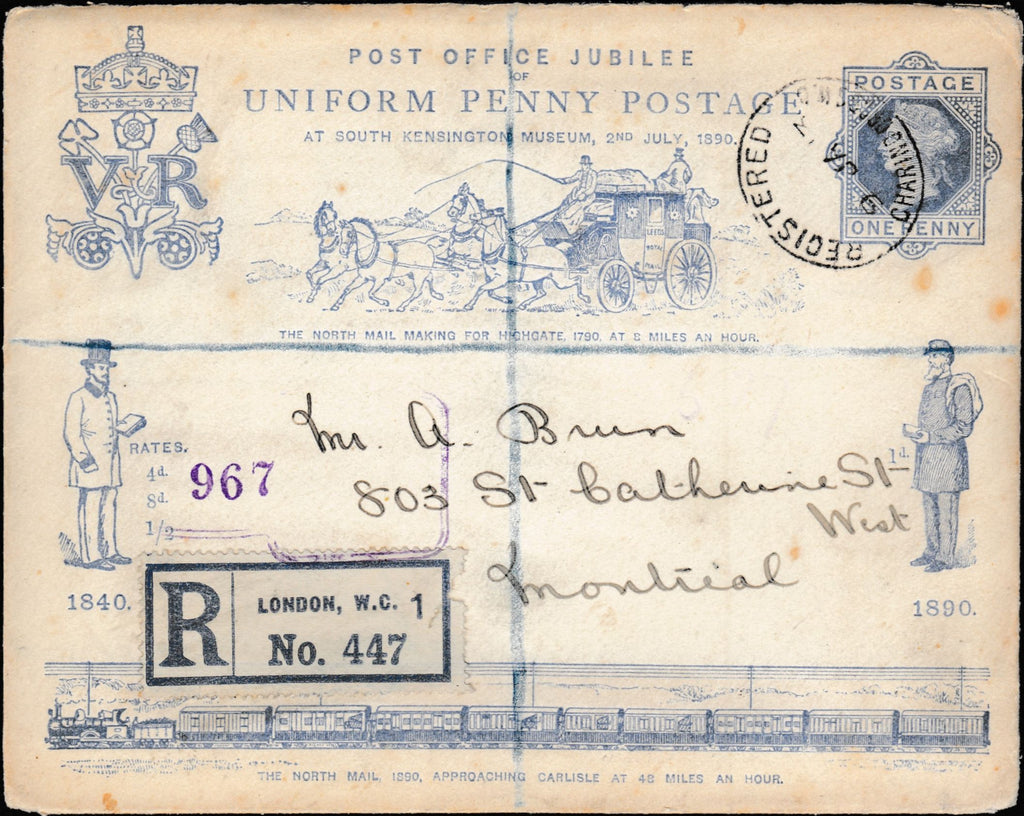 POST OFFICE JUBILEE
OF
UNIFORM PENNY POSTAGE
AT SOUTH KENSINGTON MUSEUM, 2ND JULY, 1890.
POSTAGE
ONE PENNY
REGISTERED
CHARING
V R
LEEDS
ROYAL
MAIL
THE NORTH MAIL MAKING FOR HIGHGATE, 1790, AT 8 MILES AN HOUR.
RATES.
4d.
8d.
1/2
967
1d.
Mr. A. Brun
803 St Catherine St
West
Montreal
1840.
1890.
R
LONDON, W.C. 1
No. 447
THE NORTH MAIL, 1890, APPROACHING CARLISLE AT 48 MILES AN HOUR.